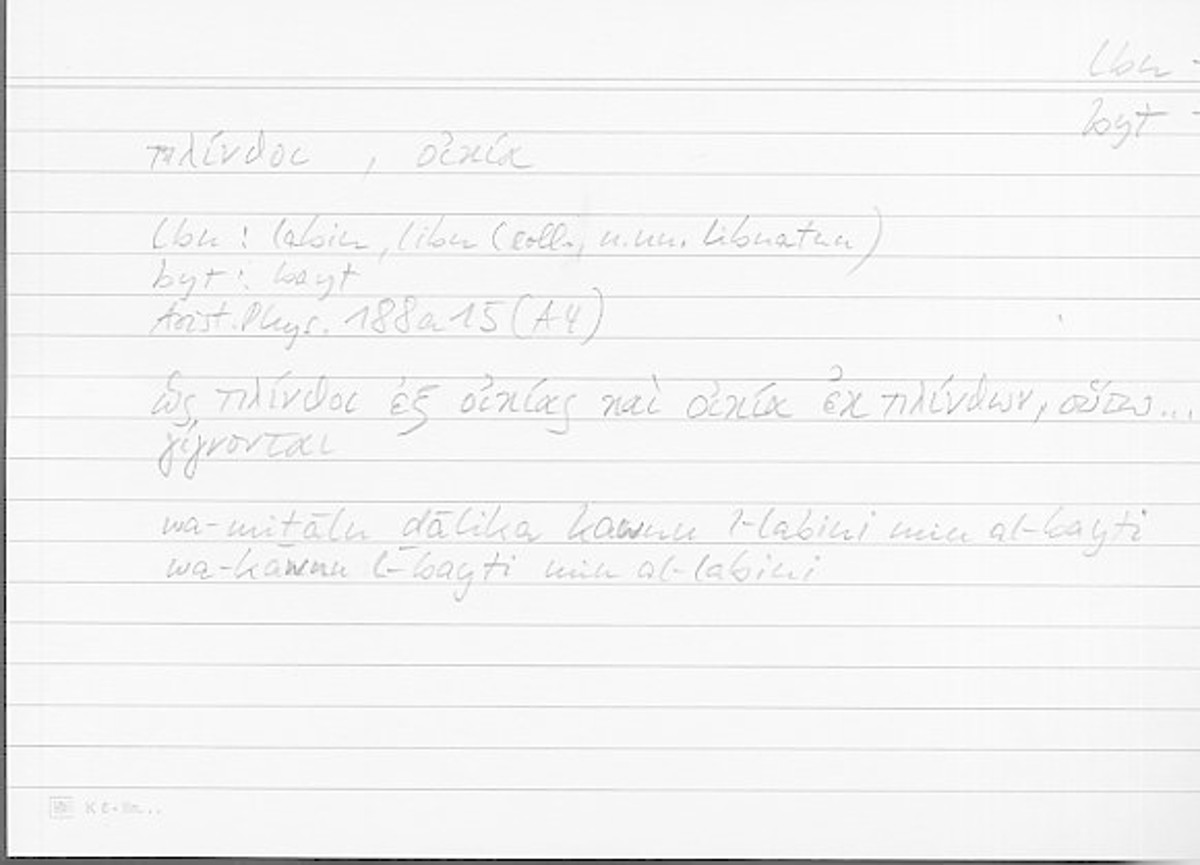 lbn -
byt -
πλίνθοι , οἰκία
lbn : labin, libn (coll., n.un. libnatun)
byt : bayt
Arist. Phys. 188a15 (A4)
ὡς πλίνθοι ἐξ οἰκίας καὶ οἰκία ἐκ πλίνθων, οὕτω...
γίγνονται
wa-miṯālu ḏālika kawnu l-labini min al-bayti
wa-kawnu l-bayti min al-labini